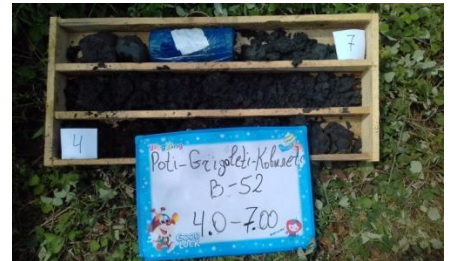 7
4
Poti-Grigoleti-Kobuleti
B-52
4.0-7.00
GOOD